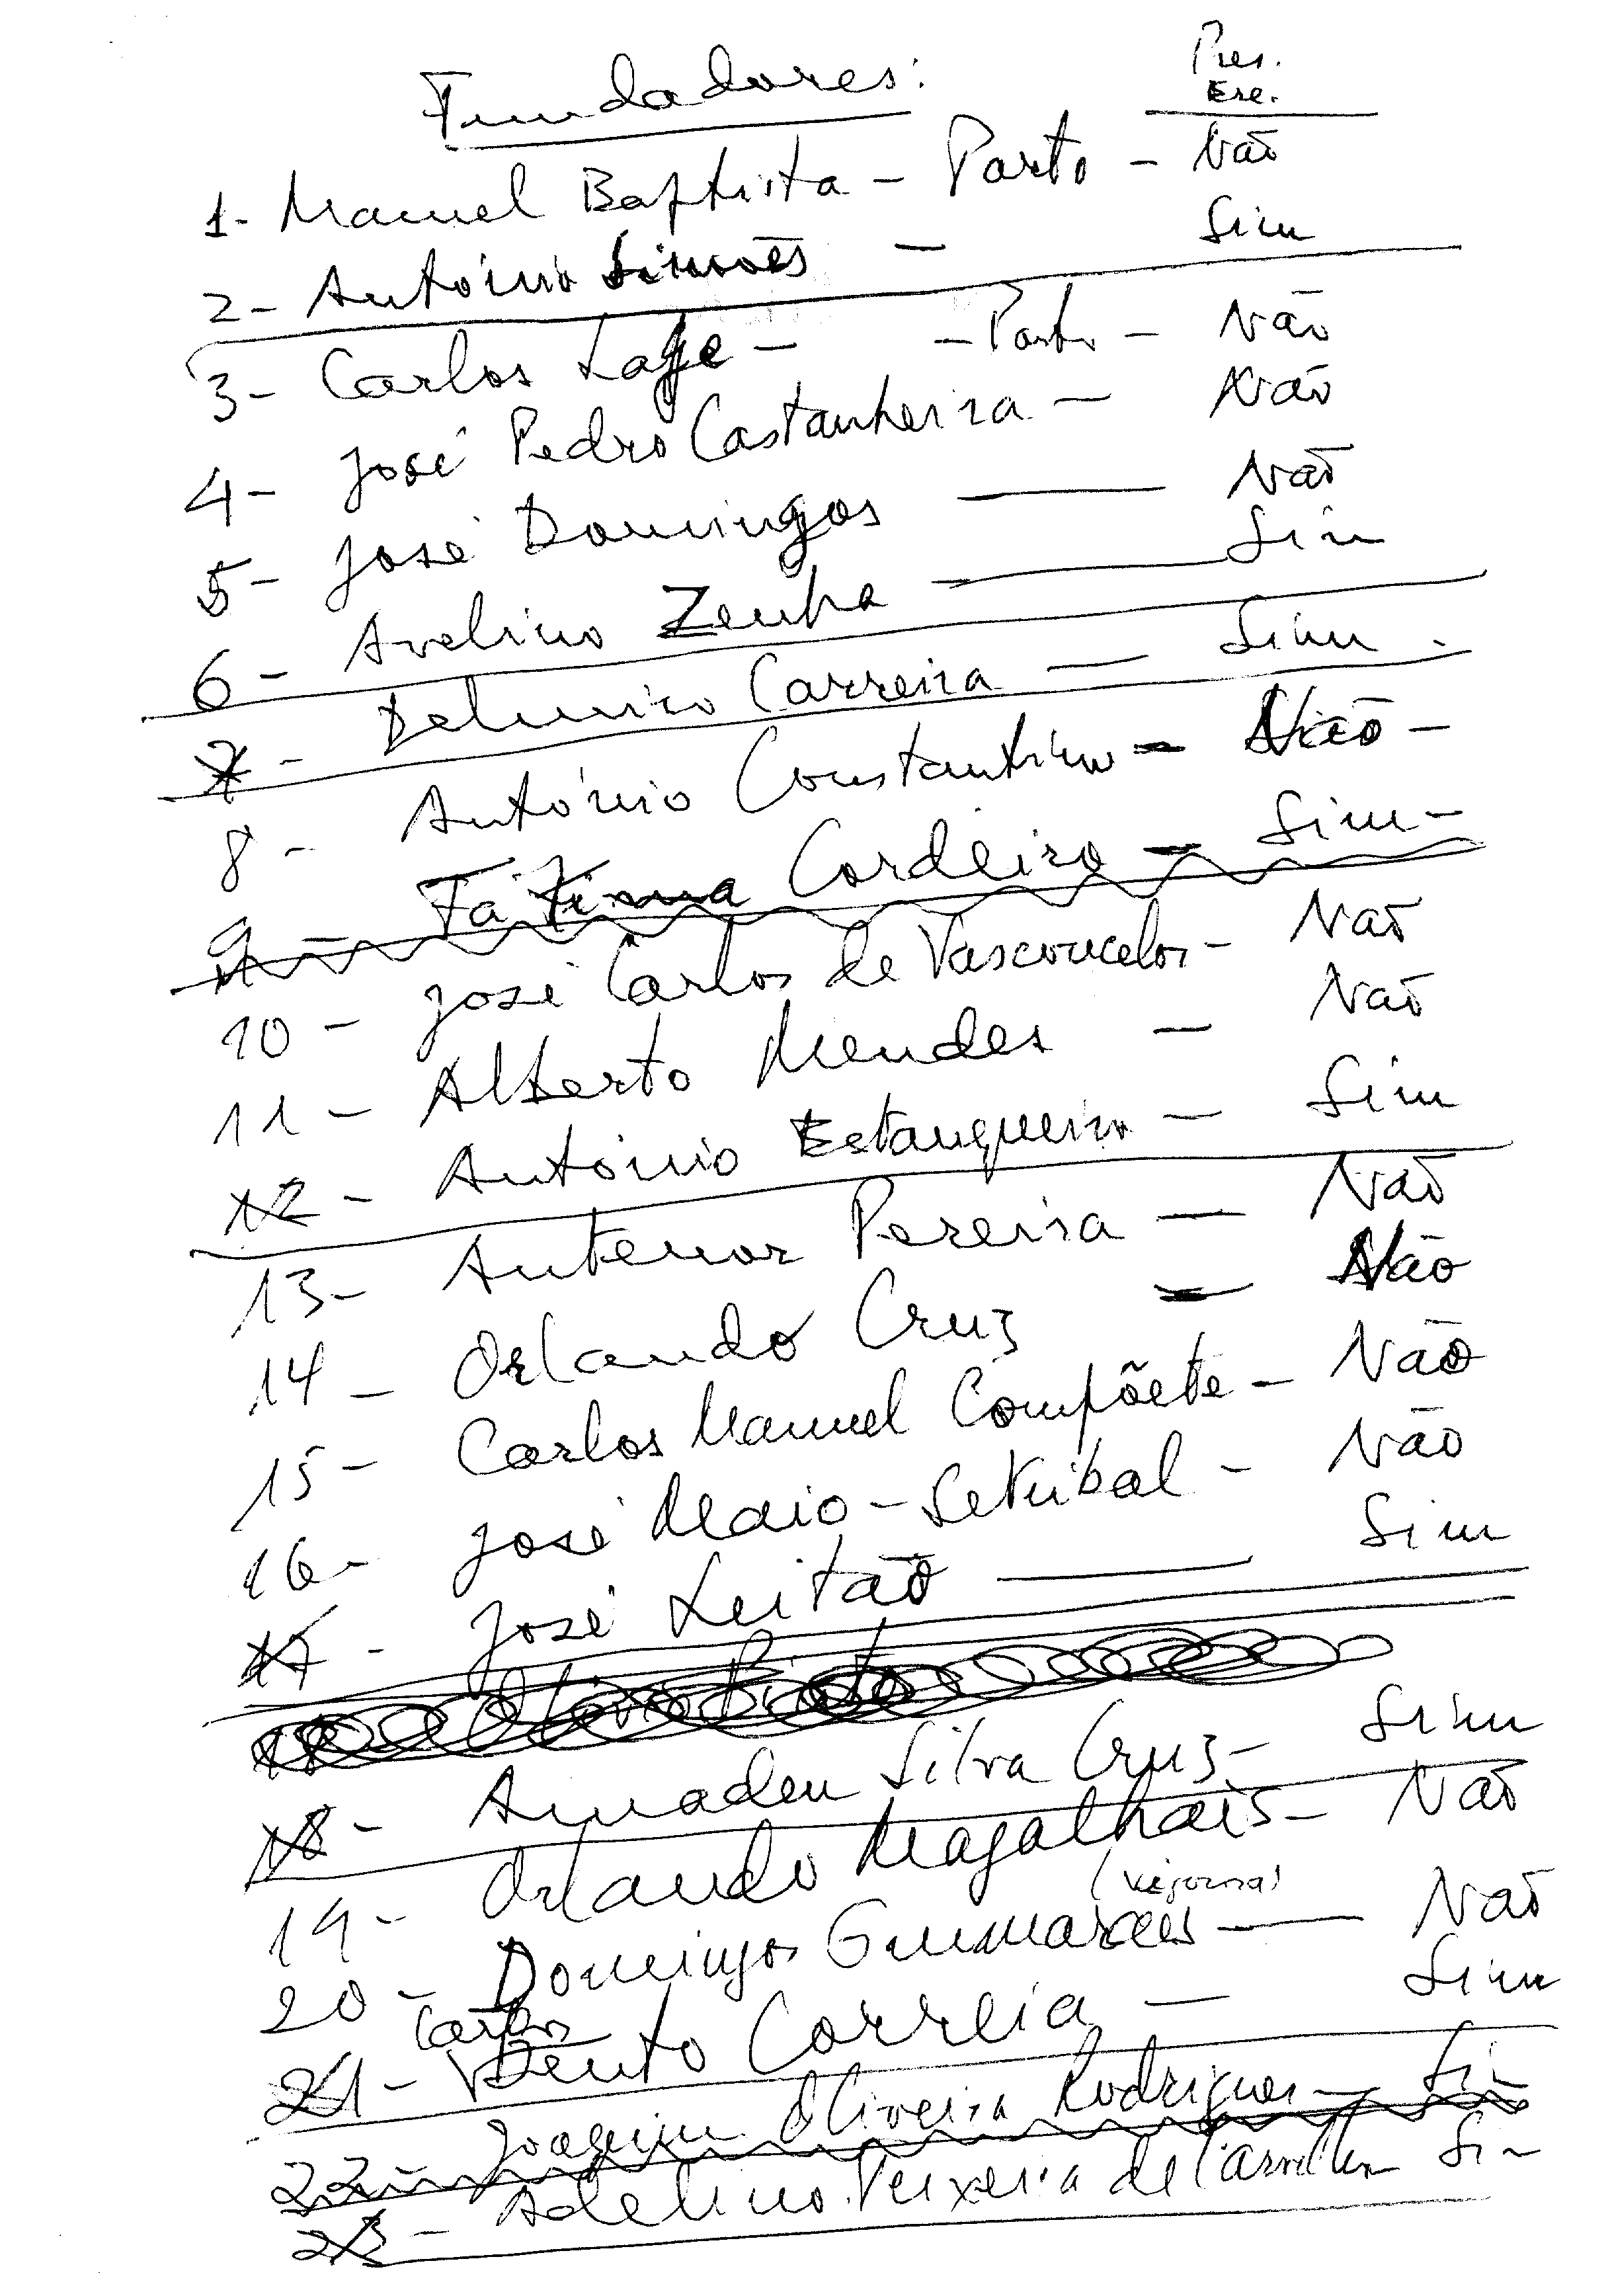 Fundadores:
Pres.
Ese.
1- Manuel Baptista - Porto - Não
2- António Simões - Sim
3- Carlos Lage - - Porto - Não
4- José Pedro Castanheira - Não
5- José Domingos - Não
6- Avelino Zenha - Sim
7- Delmiro Carreira - Sim.
8- António Constantino - Não -
9- Fátima Cordeiro - Sim -
10- José Carlos de Vasconcelos - Não
11- Alberto Mendes - Não
12- António Estanqueiro - Sim
13- Antenor Pereira - Não
14- Orlando Cruz - Não
15- Carlos Manuel Compõete - Não
16- José Maio - Setúbal - Não
17- José Leitão - Sim
18 Olívio Pinto
18- Amadeu Silva Cruz - Sim
19- Orlando Magalhais - Não
20- Domingos Guimarães - Não
21- Carlos Bento Correia - Sim
22- Joaquim Oliveira Rodrigues - Si-
23- Adelino Teixeira de Carvalho Si-